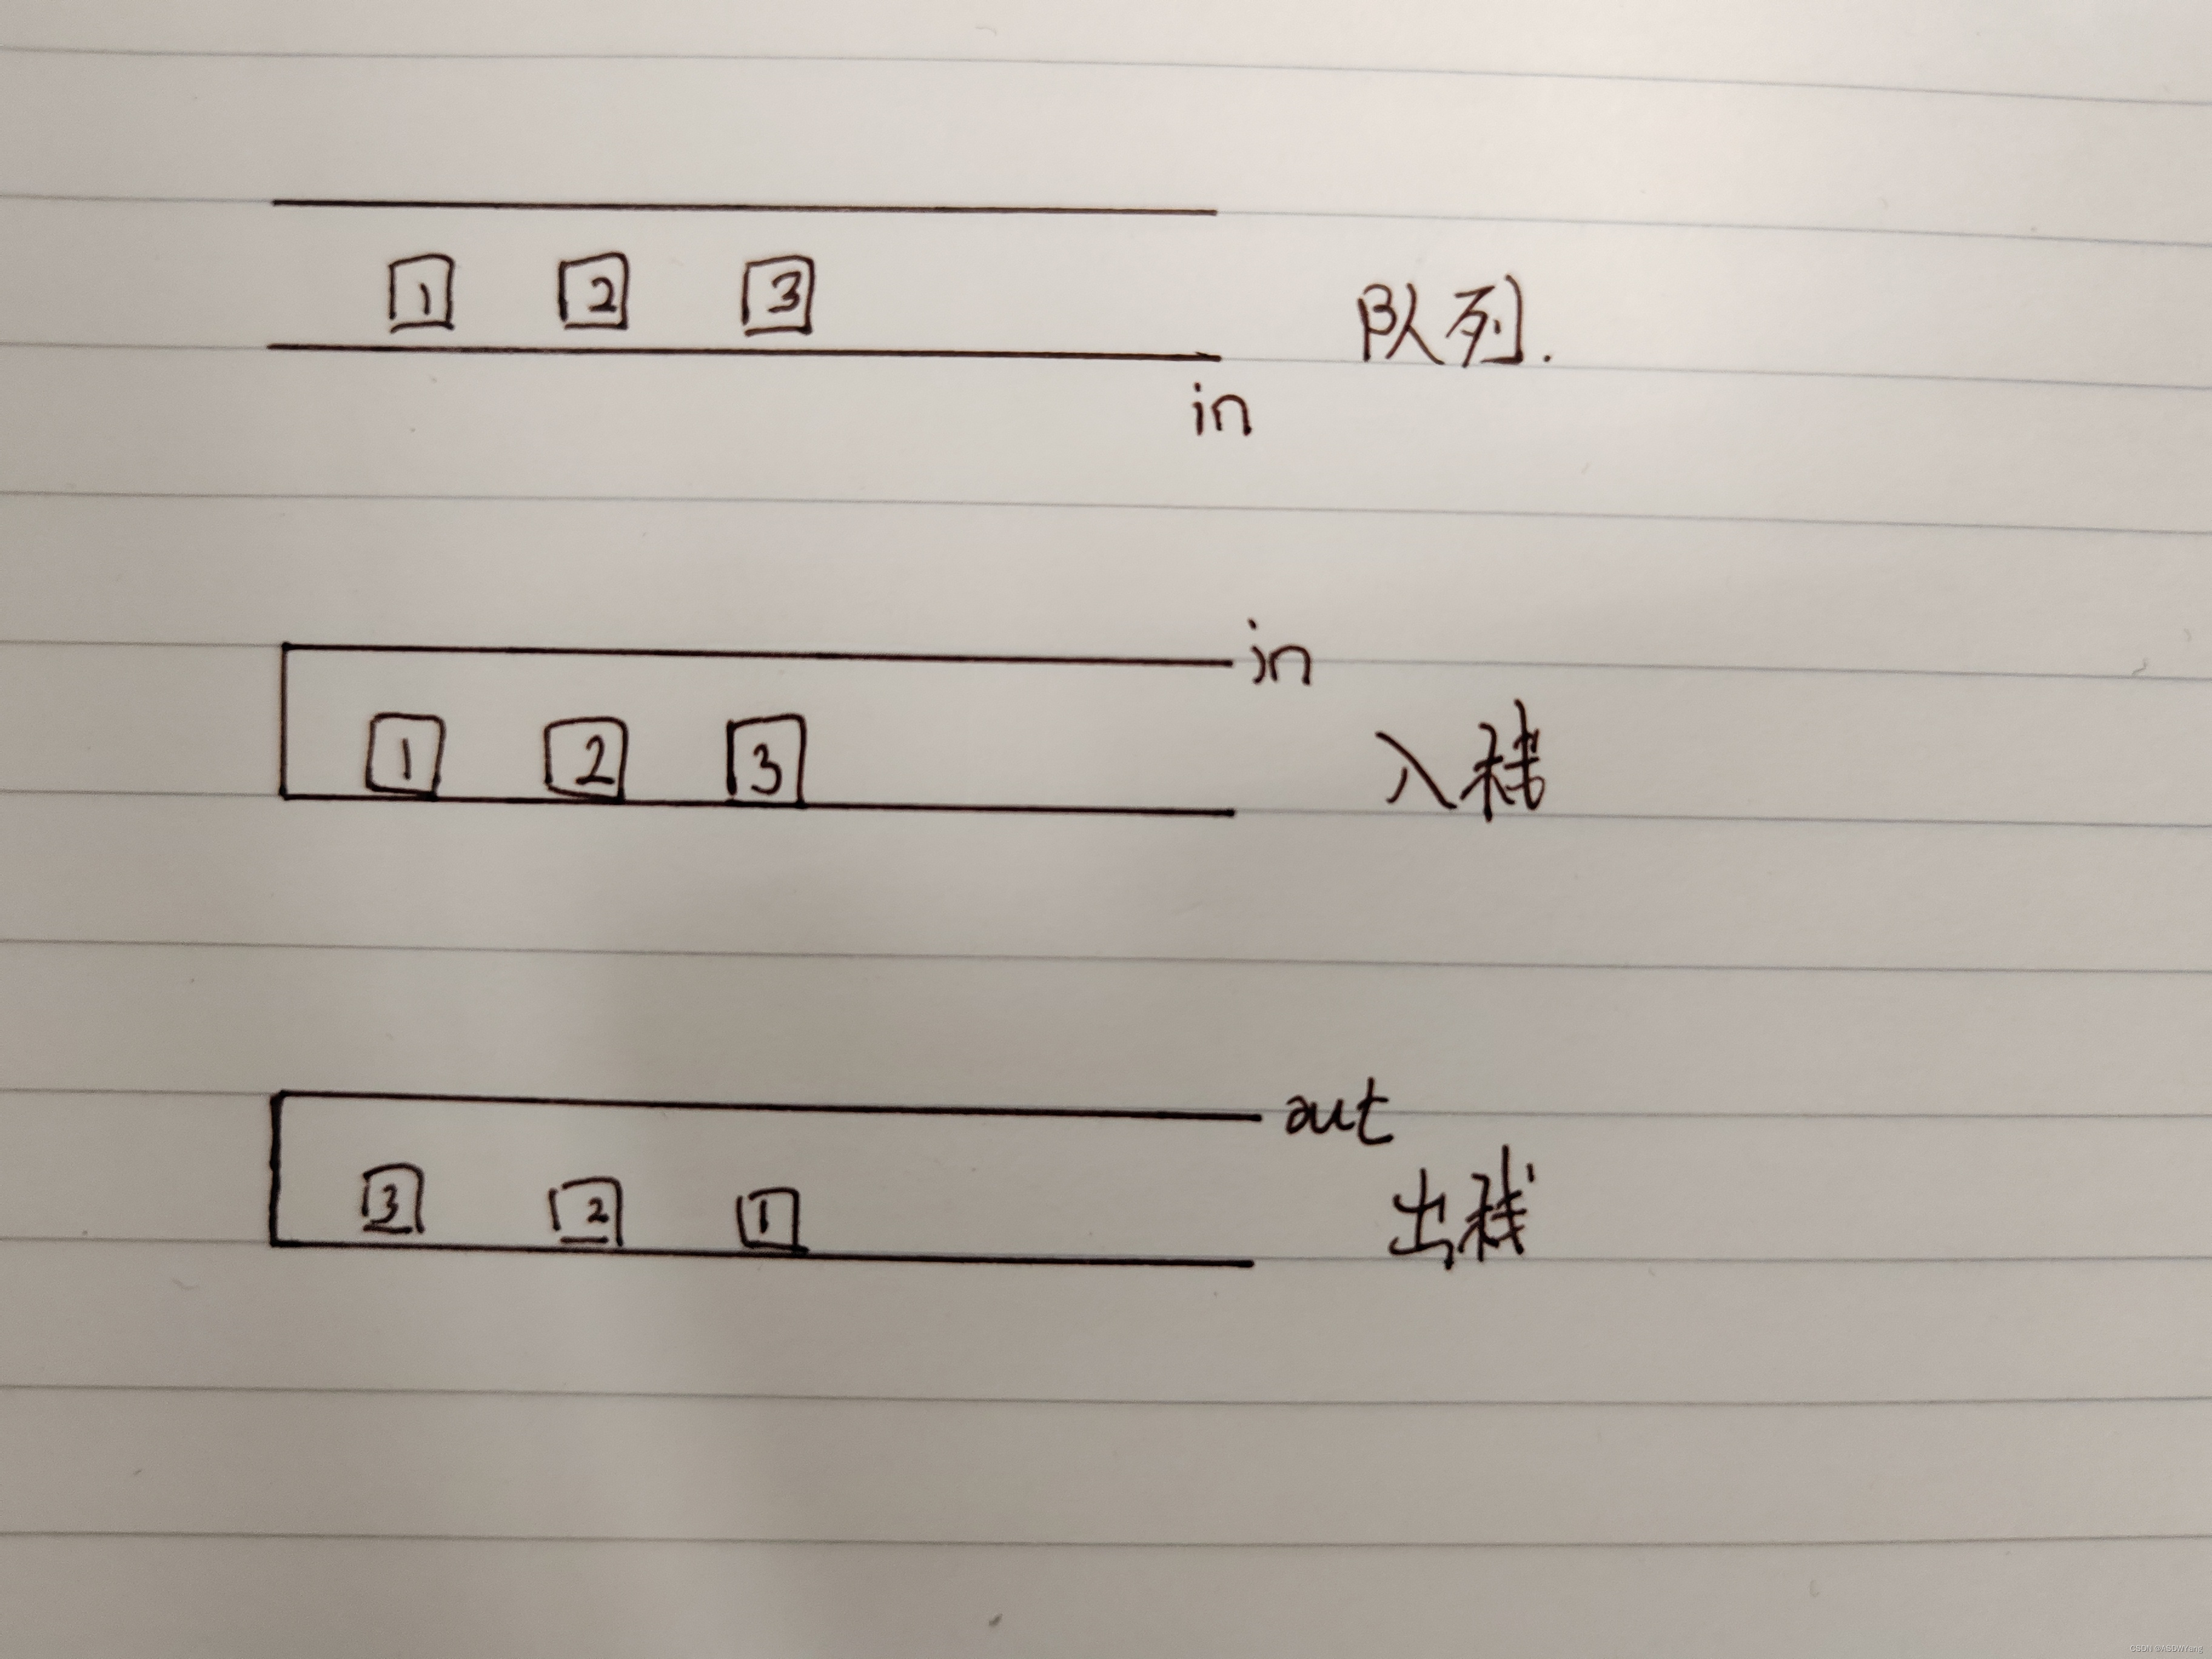 1 2 3
队列.
in
in
1 2 3
入栈
out
3 2 1
出栈
CSDN @ASDWYang